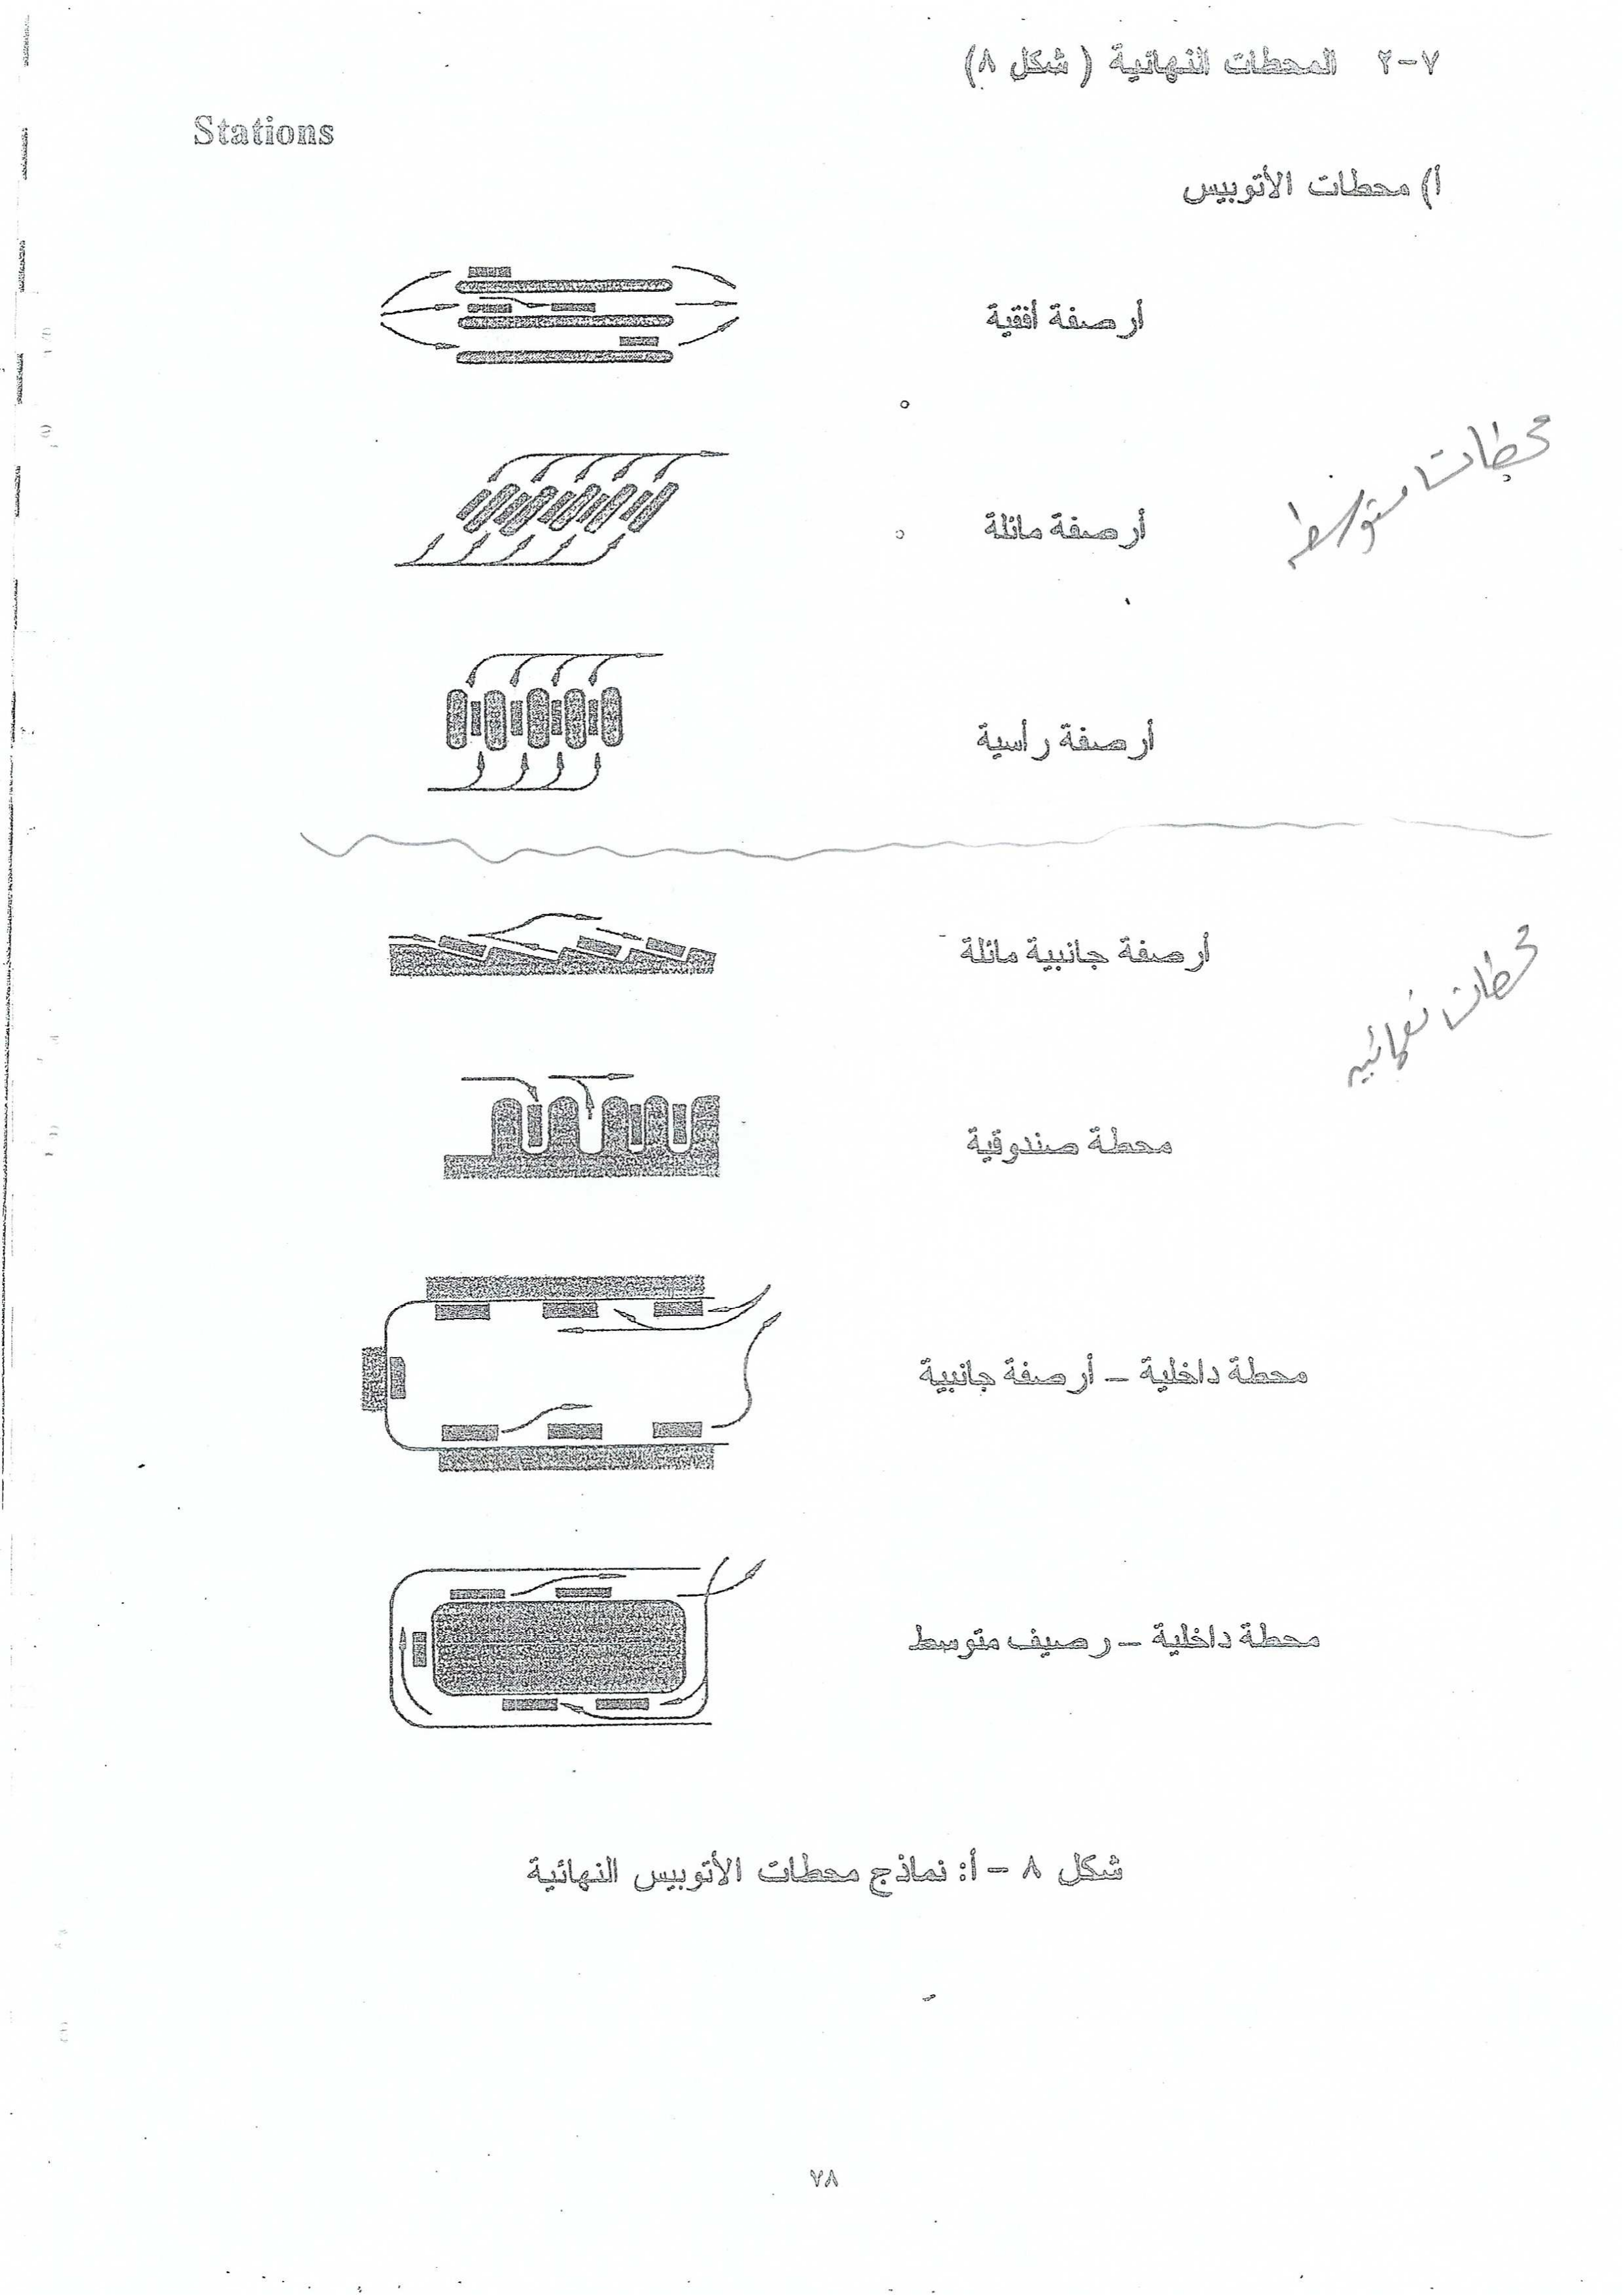 ٧-٢ المحطات النهائية ( شكل ٨)
Stations
أ) محطات الأتوبيس
أرصفة أفقية
محطات متوسطه
أرصفة مائلة
أرصفة رأسية
أرصفة جانبية مائلة
محطات نهائيه
محطة صندوقية
محطة داخلية – أرصفة جانبية
محطة داخلية – رصيف متوسط
شكل ٨ – أ: نماذج محطات الأتوبيس النهائية
٧٨